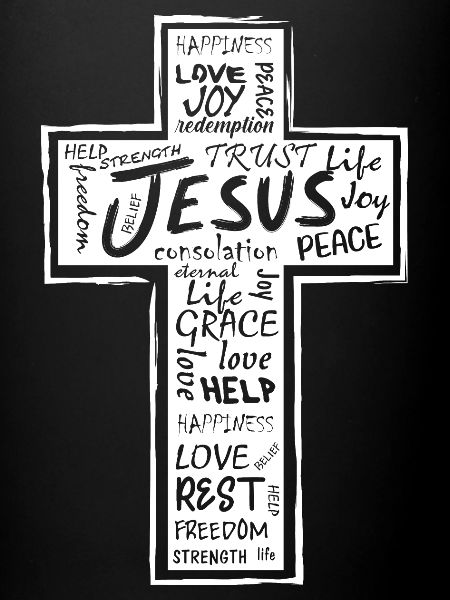 HAPPINESS
LOVE
PEACE
JOY
redemption
HELP
STRENGTH
TRUST
Life
freedom
BELIEF
JESUS
Joy
consolation
PEACE
eternal
Joy
Life
GRACE
love
love
HELP
HAPPINESS
LOVE
BELIEF
REST
HELP
FREEDOM
STRENGTH life